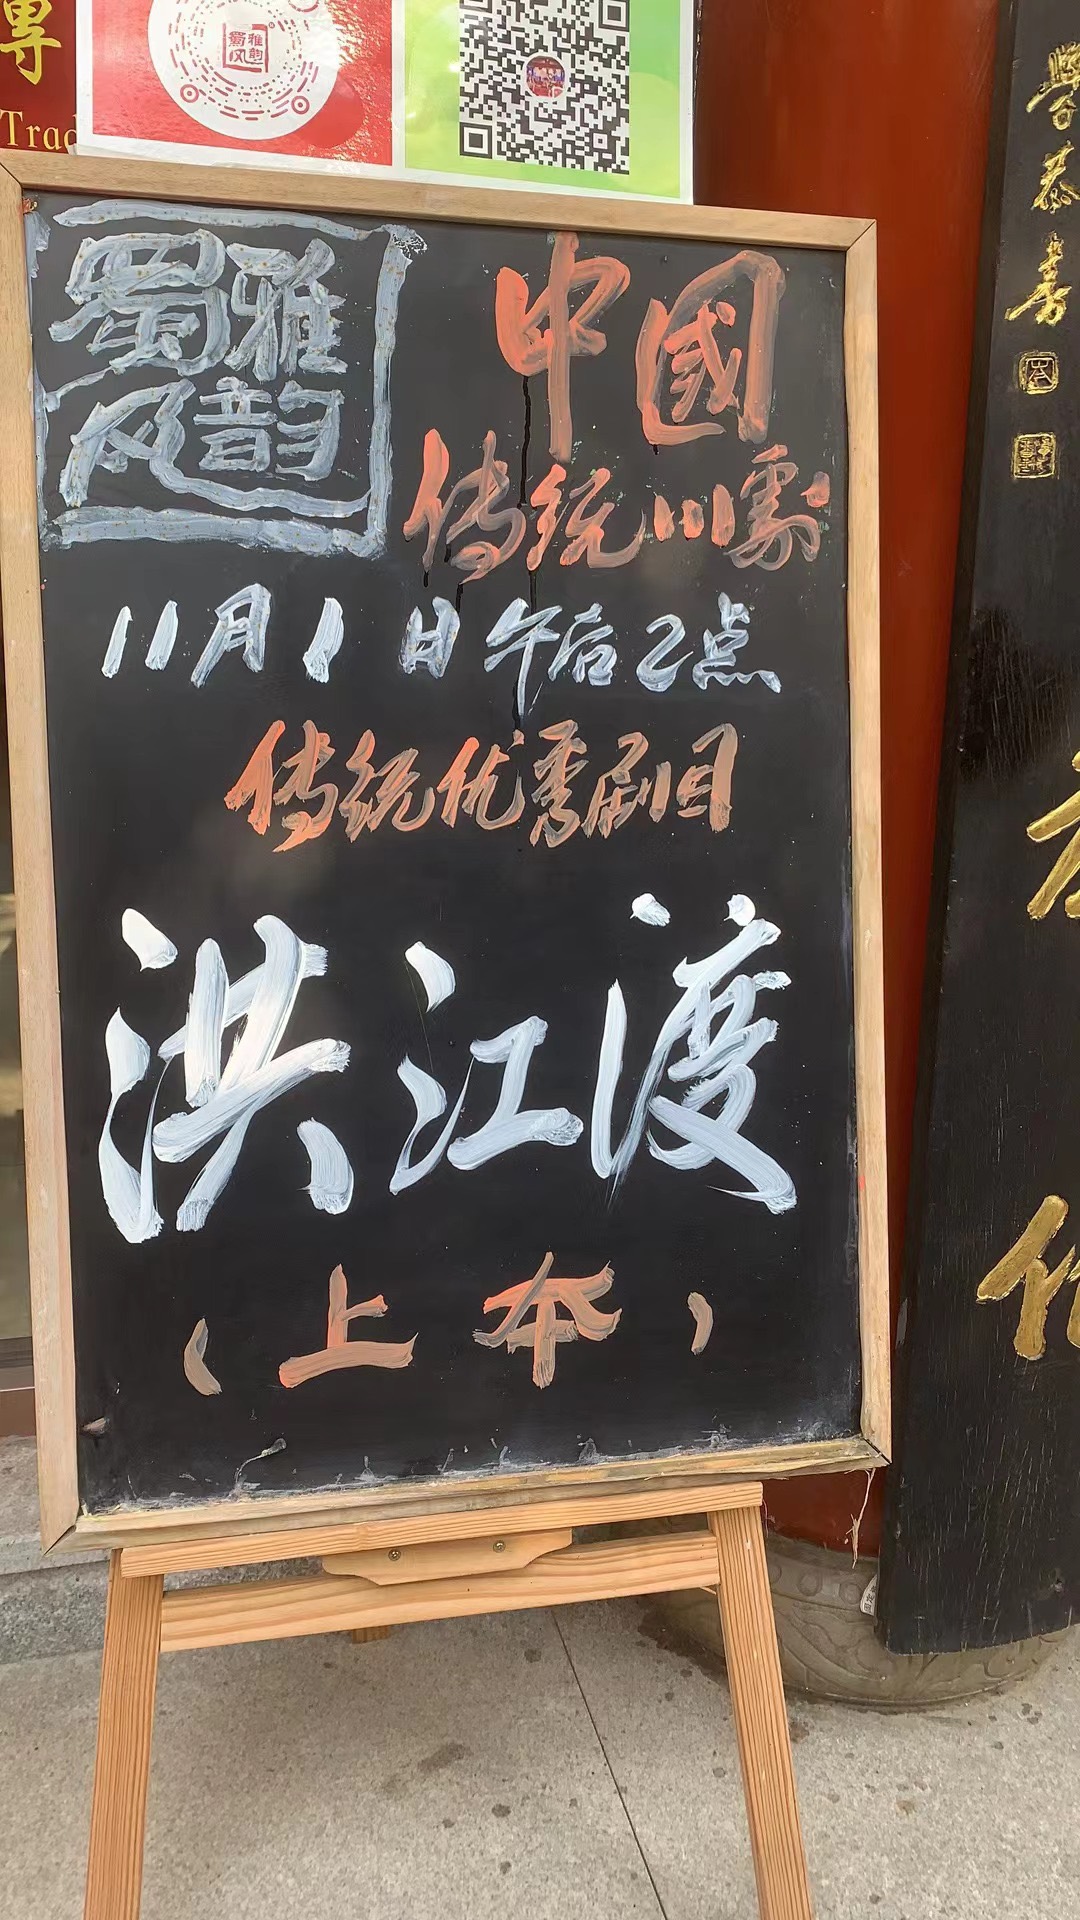 專
Trad
蜀风雅韵
學恭書
蜀风雅韵
中國
传统川劇
11月1日午后2点
传统优秀剧目
洪江渡
(上本)